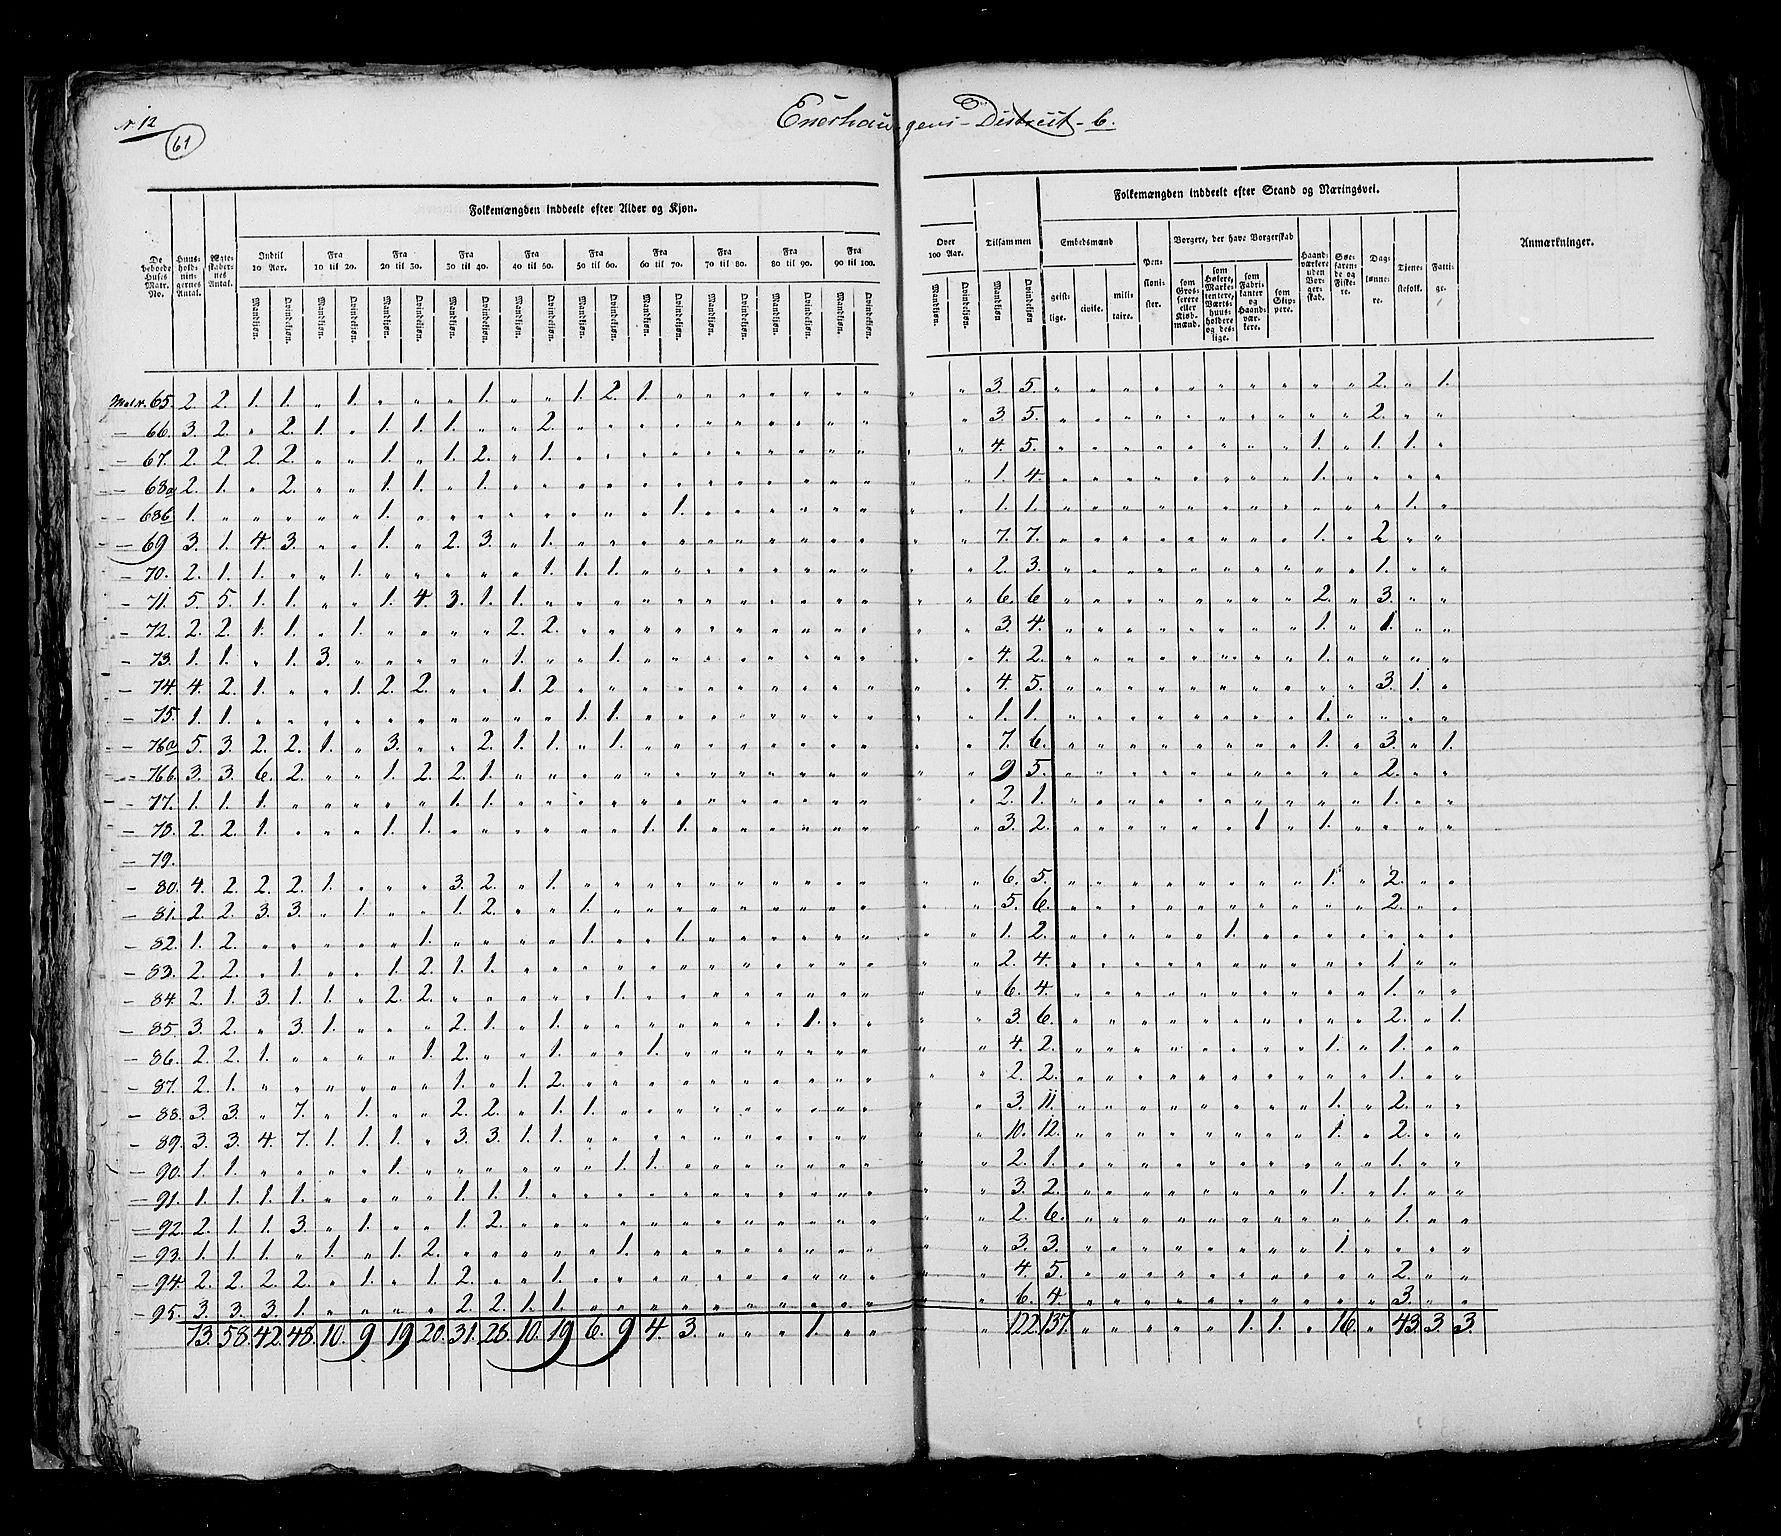 N. 12
61
Enerhaugens District 6.
Folkemængden inddeelt efter Alder og Kjøn.
Folkemængden inddeelt efter Stand og Næringsvei.
De beboede Huses Matr. No.
Huusholdningernes Antal.
Ægteskabernes Antal.
Indtil 10 Aar.
Fra 10 til 20.
Fra 20 til 30.
Fra 30 til 40.
Fra 40 til 50.
Fra 50 til 60.
Fra 60 til 70.
Fra 70 til 80.
Fra 80 til 90.
Fra 90 til 100.
Over 100 Aar.
Tilsammen
Mandkjøn. Qvindekjøn.
Embedsmænd
geistlige. civile. militaire.
Pensionister.
Borgere, der have Borgerskab
som Grosserere eller Kjøbmænd.
som Høkere, Marketentere, Værtshuusholdere og deslige.
som Fabrikanter og Haandværkere.
som Skippere.
Haandværkere uden Borgerskab.
Søefarende og Fiskere.
Daglønnere.
Tjenestefolk.
Fattige.
Anmærkninger.
Mat. N. 65. 2. 2. 1. 1. „ 1. „ „ „ 1. „ „ 1. 2. 1. „ „ „ „ „ „ „ „ „ 3. 5. „ „ „ „ „ „ „ „ „ „ 2. „ 1.
– 66. 3. 2. „ 2. 1. „ 1. 1. 1. „ „ 2. „ „ „ „ „ „ „ „ „ „ „ „ 3. 5. „ „ „ „ „ „ „ „ „ „ 2. „ „
– 67. 2. 2. 2. 2. „ „ 1. „ 1. 2. „ 1. „ „ „ „ „ „ „ „ „ „ „ „ 4. 5. „ „ „ „ „ „ „ „ 1. „ 1. 1. „
– 68a 2. 1. „ 2. „ „ 1. 1. „ 1. „ „ „ „ „ „ „ „ „ „ „ „ „ „ 1. 4. „ „ „ „ „ „ „ „ 1. „ „ „ „
– 68b 1. „ „ „ „ „ 1. „ „ „ „ „ „ „ „ 1. „ „ „ „ „ „ „ „ 1. 1. „ „ „ „ „ „ „ „ „ „ „ 1. „
– 69 3. 1. 4. 3. „ „ 1. „ 2. 3. „ 1. „ „ „ „ „ „ „ „ „ „ „ „ 7. 7. „ „ „ „ „ „ „ „ 1. „ 2 „ „
– 70. 2. 1. 1. „ „ 1. „ „ „ „ „ 1. 1. 1. „ „ „ „ „ „ „ „ „ „ 2. 3. „ „ „ „ „ „ „ „ „ „ 1. „ „
– 71. 5. 5. 1. 1. „ „ 1. 4. 3. 1. 1. „ „ „ „ „ „ „ „ „ „ „ „ „ 6. 6 „ „ „ „ „ „ „ „ 2. „ 3. „ „
– 72. 2. 2. 1. 1. „ 1. „ „ „ „ 2. 2. „ „ „ „ „ „ „ „ „ „ „ „ 3. 4. „ „ „ „ „ „ „ „ 1. „ 1. „ „
– 73. 1. 1. „ 1. 3. „ „ „ „ „ 1. „ „ 1. „ „ „ „ „ „ „ „ „ „ 4. 2. „ „ „ „ „ „ „ „ 1. „ „ „ „
– 74. 4. 2. 1. „ „ 1. 2. 2. „ „ 1. 2. „ „ „ „ „ „ „ „ „ „ „ „ 4. 5. „ „ „ „ „ „ „ „ „ „ 3. 1. „
– 75. 1. 1. „ „ „ „ „ „ „ „ „ „ 1. 1. „ „ „ „ „ „ „ „ „ „ 1. 1. „ „ „ „ „ „ „ „ 1. „ „ „ „
– 76a 5. 3. 2. 2. 1. „ 3. „ „ 2. 1. 1. „ 1. „ „ „ „ „ „ „ „ „ „ 7. 6. „ „ „ „ „ „ „ „ 1. „ 3. „ 1.
– 76b. 3. 3. 6. 2. „ „ 1. 2. 2. 1. „ „ „ „ „ „ „ „ „ „ „ „ „ „ 9 5. „ „ „ „ „ „ „ „ „ „ 2. „ „
– 77. 1. 1. 1. „ „ „ „ „ 1. 1. „ „ „ „ „ „ „ „ „ „ „ „ „ „ 2. 1. „ „ „ „ „ „ „ „ „ „ 1. „ „
– 78. 2. 2. 1. „ „ „ 1. 1. „ „ „ „ „ „ 1. 1. „ „ „ „ „ „ „ „ 3. 2. „ „ „ „ „ „ 1. „ 1. „ „ „ „
– 79.
– 80. 4. 2. 2. 2. 1. „ „ „ 3. 2. „ 1. „ „ „ „ „ „ „ „ „ „ „ „ 6. 5. „ „ „ „ „ „ „ „ 1. „ 2. „ „
– 81. 2. 2. 3. 3. „ 1. „ „ 1. 2. „ „ 1. „ „ „ „ „ „ „ „ „ „ „ 5. 6. „ „ „ „ „ „ „ „ „ „ 2. „ „
– 82. 1. 2. „ „ „ „ „ 1. „ „ „ „ 1. „ „ 1. „ „ „ „ „ „ „ „ 1. 2. „ „ „ „ „ 1. „ „ „ „ „ „ „
– 83. 2. 2. „ 1. „ „ 1. 2. 1. 1. „ „ „ „ „ „ „ „ „ „ „ „ „ „ 2. 4. „ „ „ „ „ „ „ „ „ „ 1. „ „
– 84. 2. 1. 3. 1. 1. „ 2. 2. „ „ „ „ „ 1. „ „ „ „ „ „ „ „ „ „ 6. 4. „ „ „ „ „ „ „ „ „ „ 1. „ „
– 85. 3. 2. „ 3. 1. „ „ „ 2. 1. „ 1. „ „ „ „ „ „ „ 1. „ „ „ „ 3. 6. „ „ „ „ „ „ „ „ „ „ 2. „ 1.
– 86. 2. 2. 1. „ „ „ „ 1. 2. „ „ 1. „ „ 1. „ „ „ „ „ „ „ „ „ 4. 2. „ „ „ „ „ „ „ „ 1. „ 1. „ „
– 87. 2. 1. „ „ „ „ „ „ 1. „ 1. 2. „ „ „ „ „ „ „ „ „ „ „ „ 2. 2. „ „ „ „ „ „ „ „ „ „ 1. „ „
– 88. 3. 3. „ 7. „ 1. „ „ 2. 2. „ 1. 1. „ „ „ „ „ „ „ „ „ „ „ 3. 11. „ „ „ „ „ „ „ „ 1. „ 2. „ „
– 89. 3. 3. 4. 7. 1. 1. 1. „ 3. 3. 1. 1. „ „ „ „ „ „ „ „ „ „ „ „ 10. 12. „ „ „ „ „ „ „ „ 1. „ 2. „ „
– 90. 1. 1. „ „ „ „ 1. „ „ „ „ „ „ 1. 1. „ „ „ „ „ „ „ „ „ 2. 1. „ „ „ „ „ „ „ „ „ „ 1. „ „
– 91. 1. 1. 1. 1. „ „ „ „ 1. 1. 1. „ „ „ „ „ „ „ „ „ „ „ „ „ 3. 2. „ „ „ „ „ „ „ „ 1. „ 1. „ „
– 92. 2. 1. 1. 3. „ 1. „ „ 1. 2. „ „ „ „ „ „ „ „ „ „ „ „ „ „ 2. 6. „ „ „ „ „ „ „ „ „ „ 1. „ „
– 93. 1. 1. 1. „ 1. „ 1. 2. „ „ „ „ „ 1. „ „ „ „ „ „ „ „ „ „ 3. 3. „ „ „ „ „ „ „ „ 1. „ „ „ „
– 94. 2. 2. 2. 2. „ 1. „ 1. 2. „ „ 1. „ „ „ „ „ „ „ „ „ „ „ „ 4. 5. „ „ „ „ „ „ „ „ „ „ 2. „ „
– 95. 3. 3. 3. 1. „ „ „ „ 2. 2. 1. 1. „ „ „ „ „ „ „ „ „ „ „ „ 6. 4. „ „ „ „ „ „ „ „ „ „ 3. „ „
73. 58. 42. 48. 10. 9 19 20. 31. 28. 10. 19 6. 9 4. 3. „ „ „ 1. „ „ „ „ 122. 137. „ „ „ „ „ 1. 1. „ 16. „ 43. 3. 3.